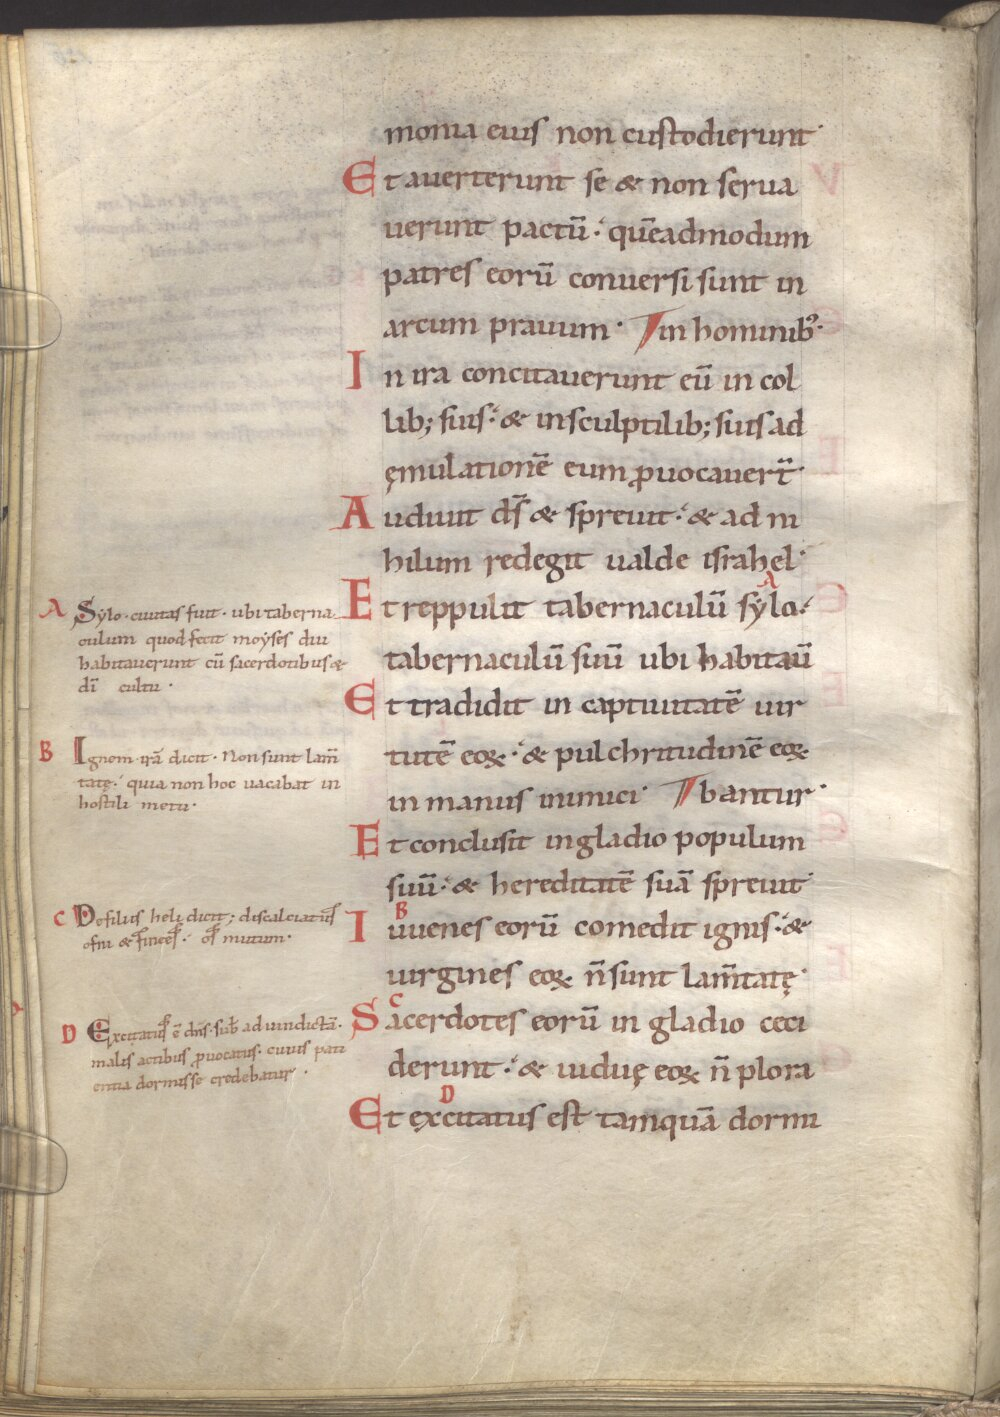 monia eius non custodierunt·
Et auerterunt se & non serua
uerunt pactū· quēadmodum
patres eorū conuersi sunt in
arcum prauum· in hominib;·
In ira concitauerunt eū in col
lib; suis· & in sculptilib; suis ad
ęmulationē eum ꝓuocauert̄·
A
Audiuit ds̄ & spreuit· & ad ni
hilum redegit ualde israhel·
Et reppulit tabernaculū sẏlo·
tabernaculū suū ubi habitau̅
Et tradidit in captiuitatē uir
tutē eoꝝ· & pulchritudinē eoꝝ
in manus inimici· bantur·
Et conclusit in gladio populum
suū· & hereditatē suā spreuit·
B
Iuuenes eorū comedit ignis· &
uirgines eoꝝ n̄ sunt lam̄tatę·
C
Sacerdotes eorū in gladio ceci
derunt· & uiduę eoꝝ n̄ plora
D
Et excitatus est tamquā dormi
A Sylo· ciuitas fuit· ubi taberna
culum quod fecit moẏses diu
habitauerunt cū sacerdotibus &
dī cultu·
B Ignem· irā dicit· Non sunt lam̄
tatę· quia non hoc uacabat in
hostili metu·
C De filiis heli dicit; discalciatus
ofni & finees· os mutum·
D Excitatus ē dn̄s· sub ad uindictā·
malis actibus ꝓuocatus· cuius pati
entia dormisse credebatur·